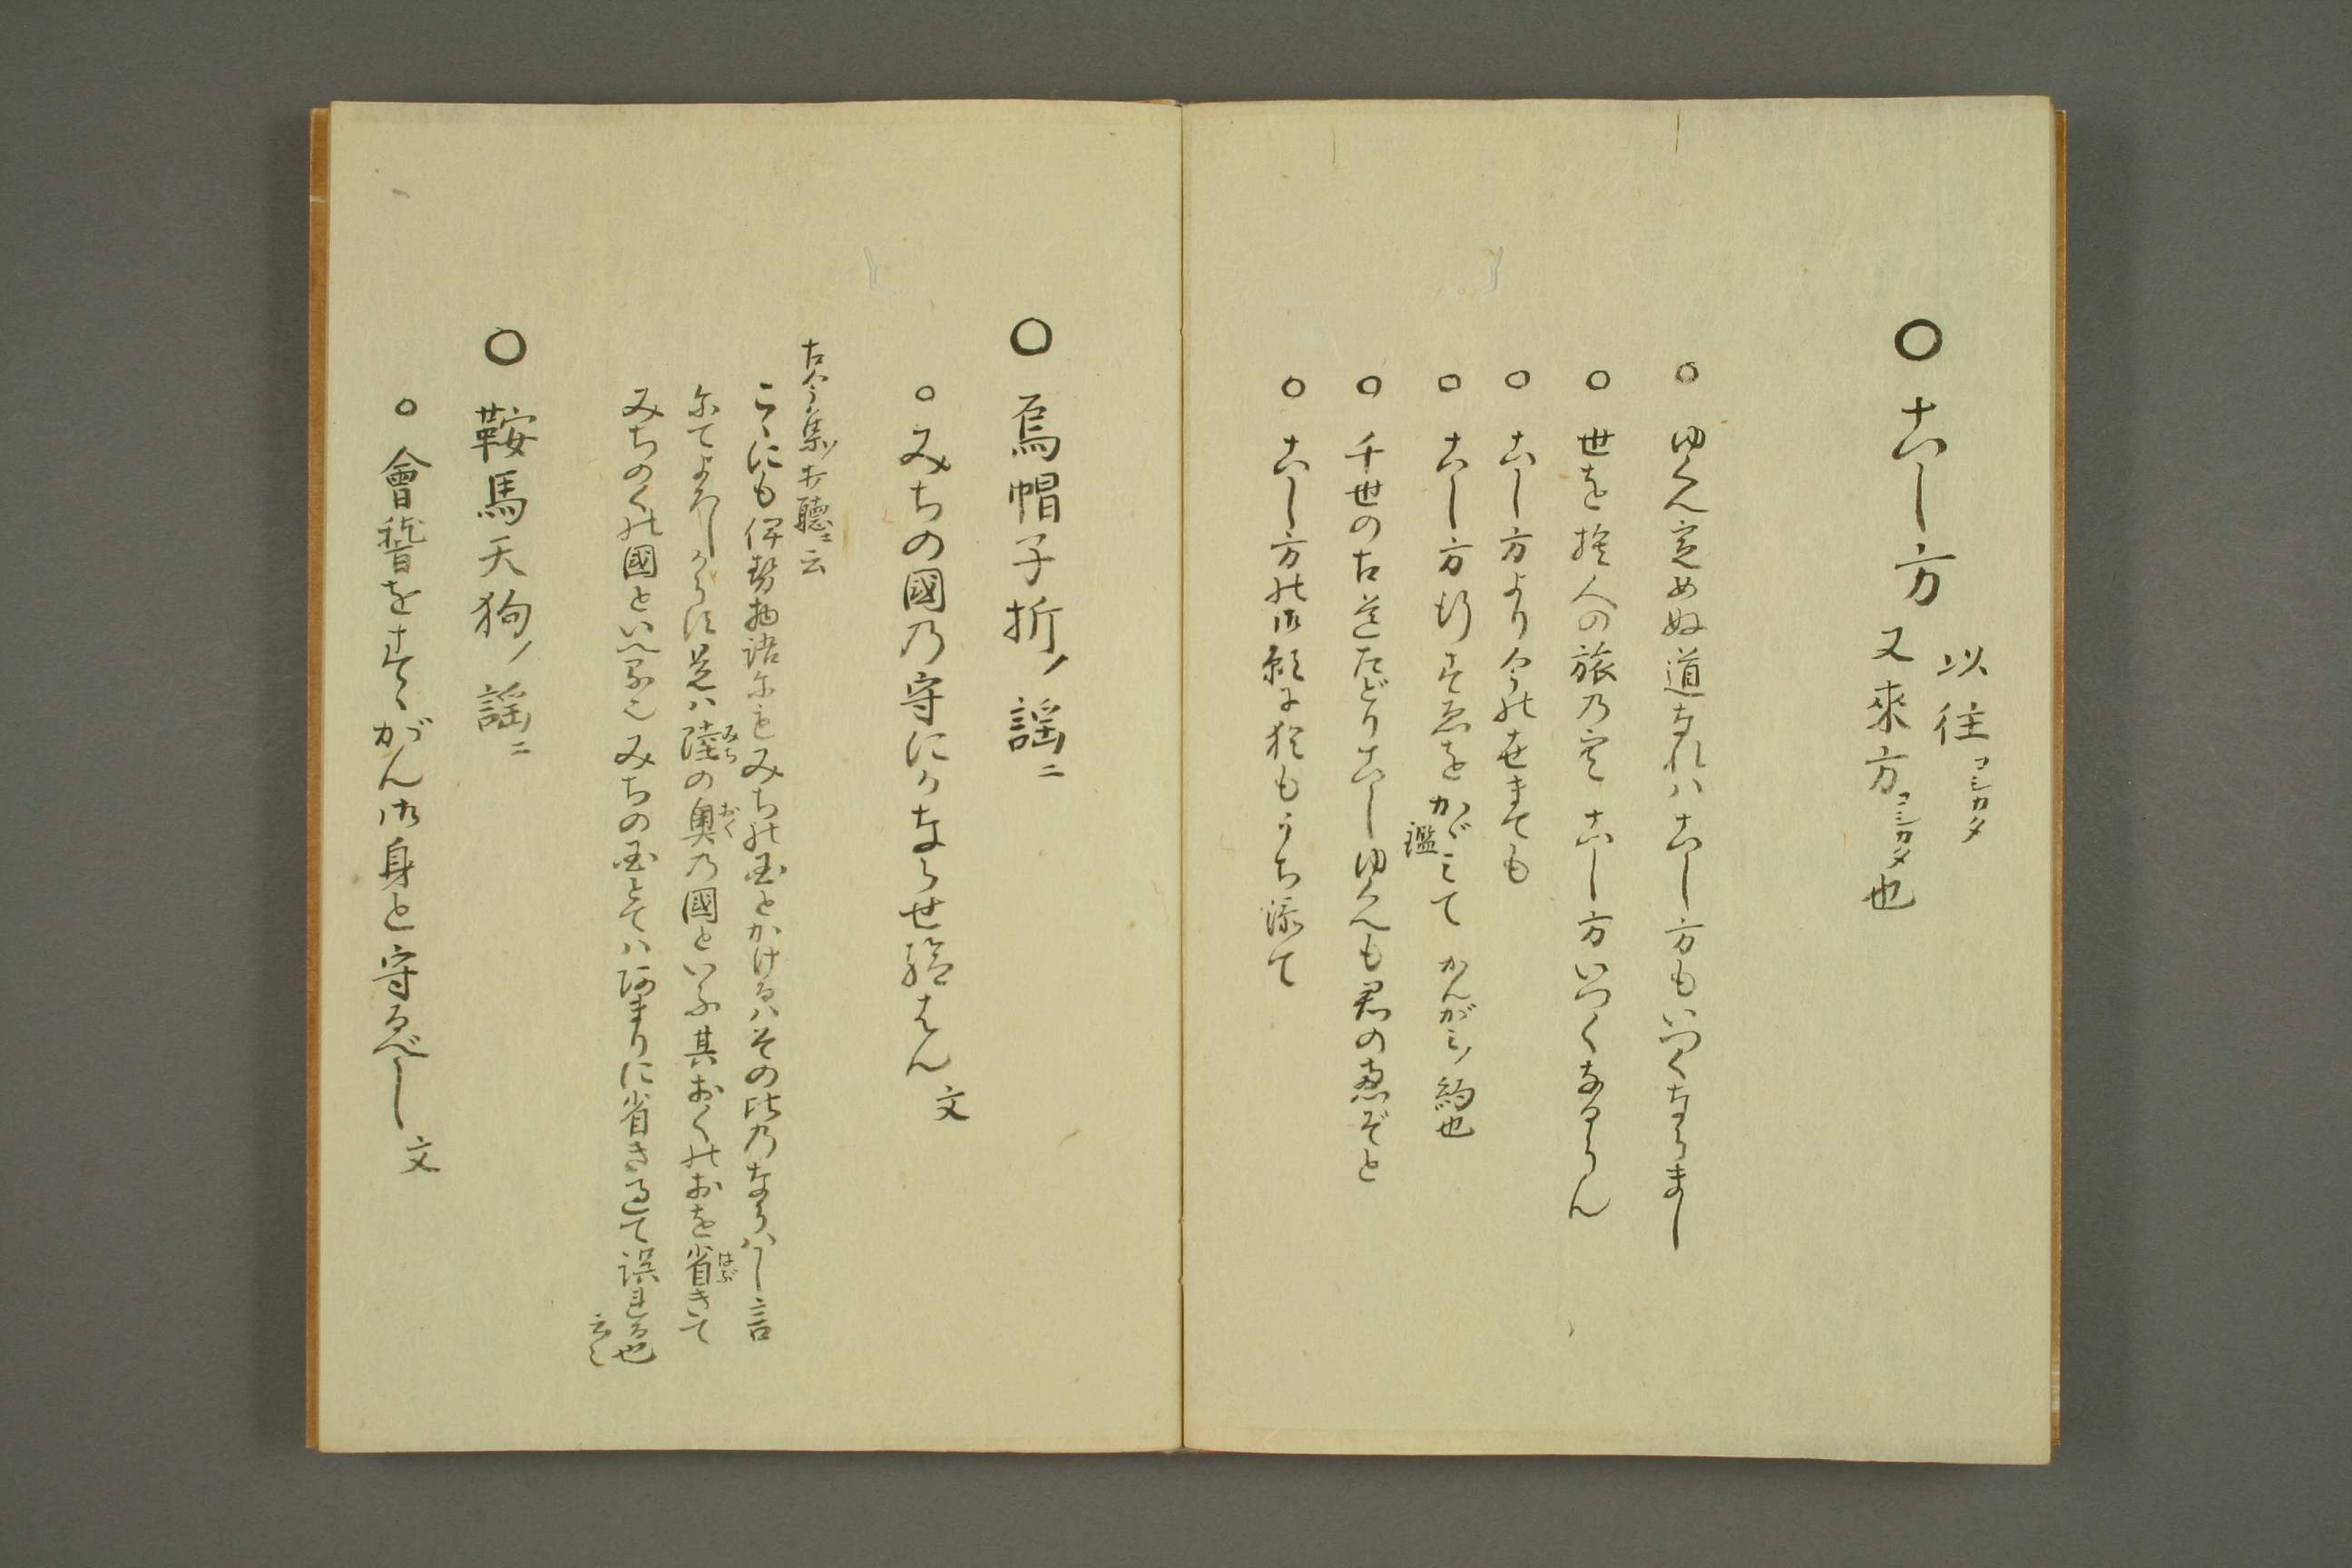 ○こし方 以往コシカタ
又來方コシカタ也
○ゆくえ定めぬ道なれハこし方もいつくならまし
○世を捨人の旅乃空こし方いつくなるらん
○こし方より今の世まても
○こし方行すゑをかゞミて 鑑 かんがミノ約也
○千世の古道たどりこしゆくえも君の恵ぞと
○こし方の御願に猶もうち添て
○烏帽子折ノ謡ニ
○みちの國乃守にならせ給はん 文
古今集打聽ニ云
こゝにも伊勢物語にもみちの国とかけるハその比乃ならハし言
にてよろしからす是ハ陸みちの奥おく乃國といふ其おくのおを省はぶきて
みちのくの國といへる也みちの国とてハあまりに省き過て誤れる也
云〻
○鞍馬天狗ノ謡ニ
○會稽をすゝがん御身と守るべし 文